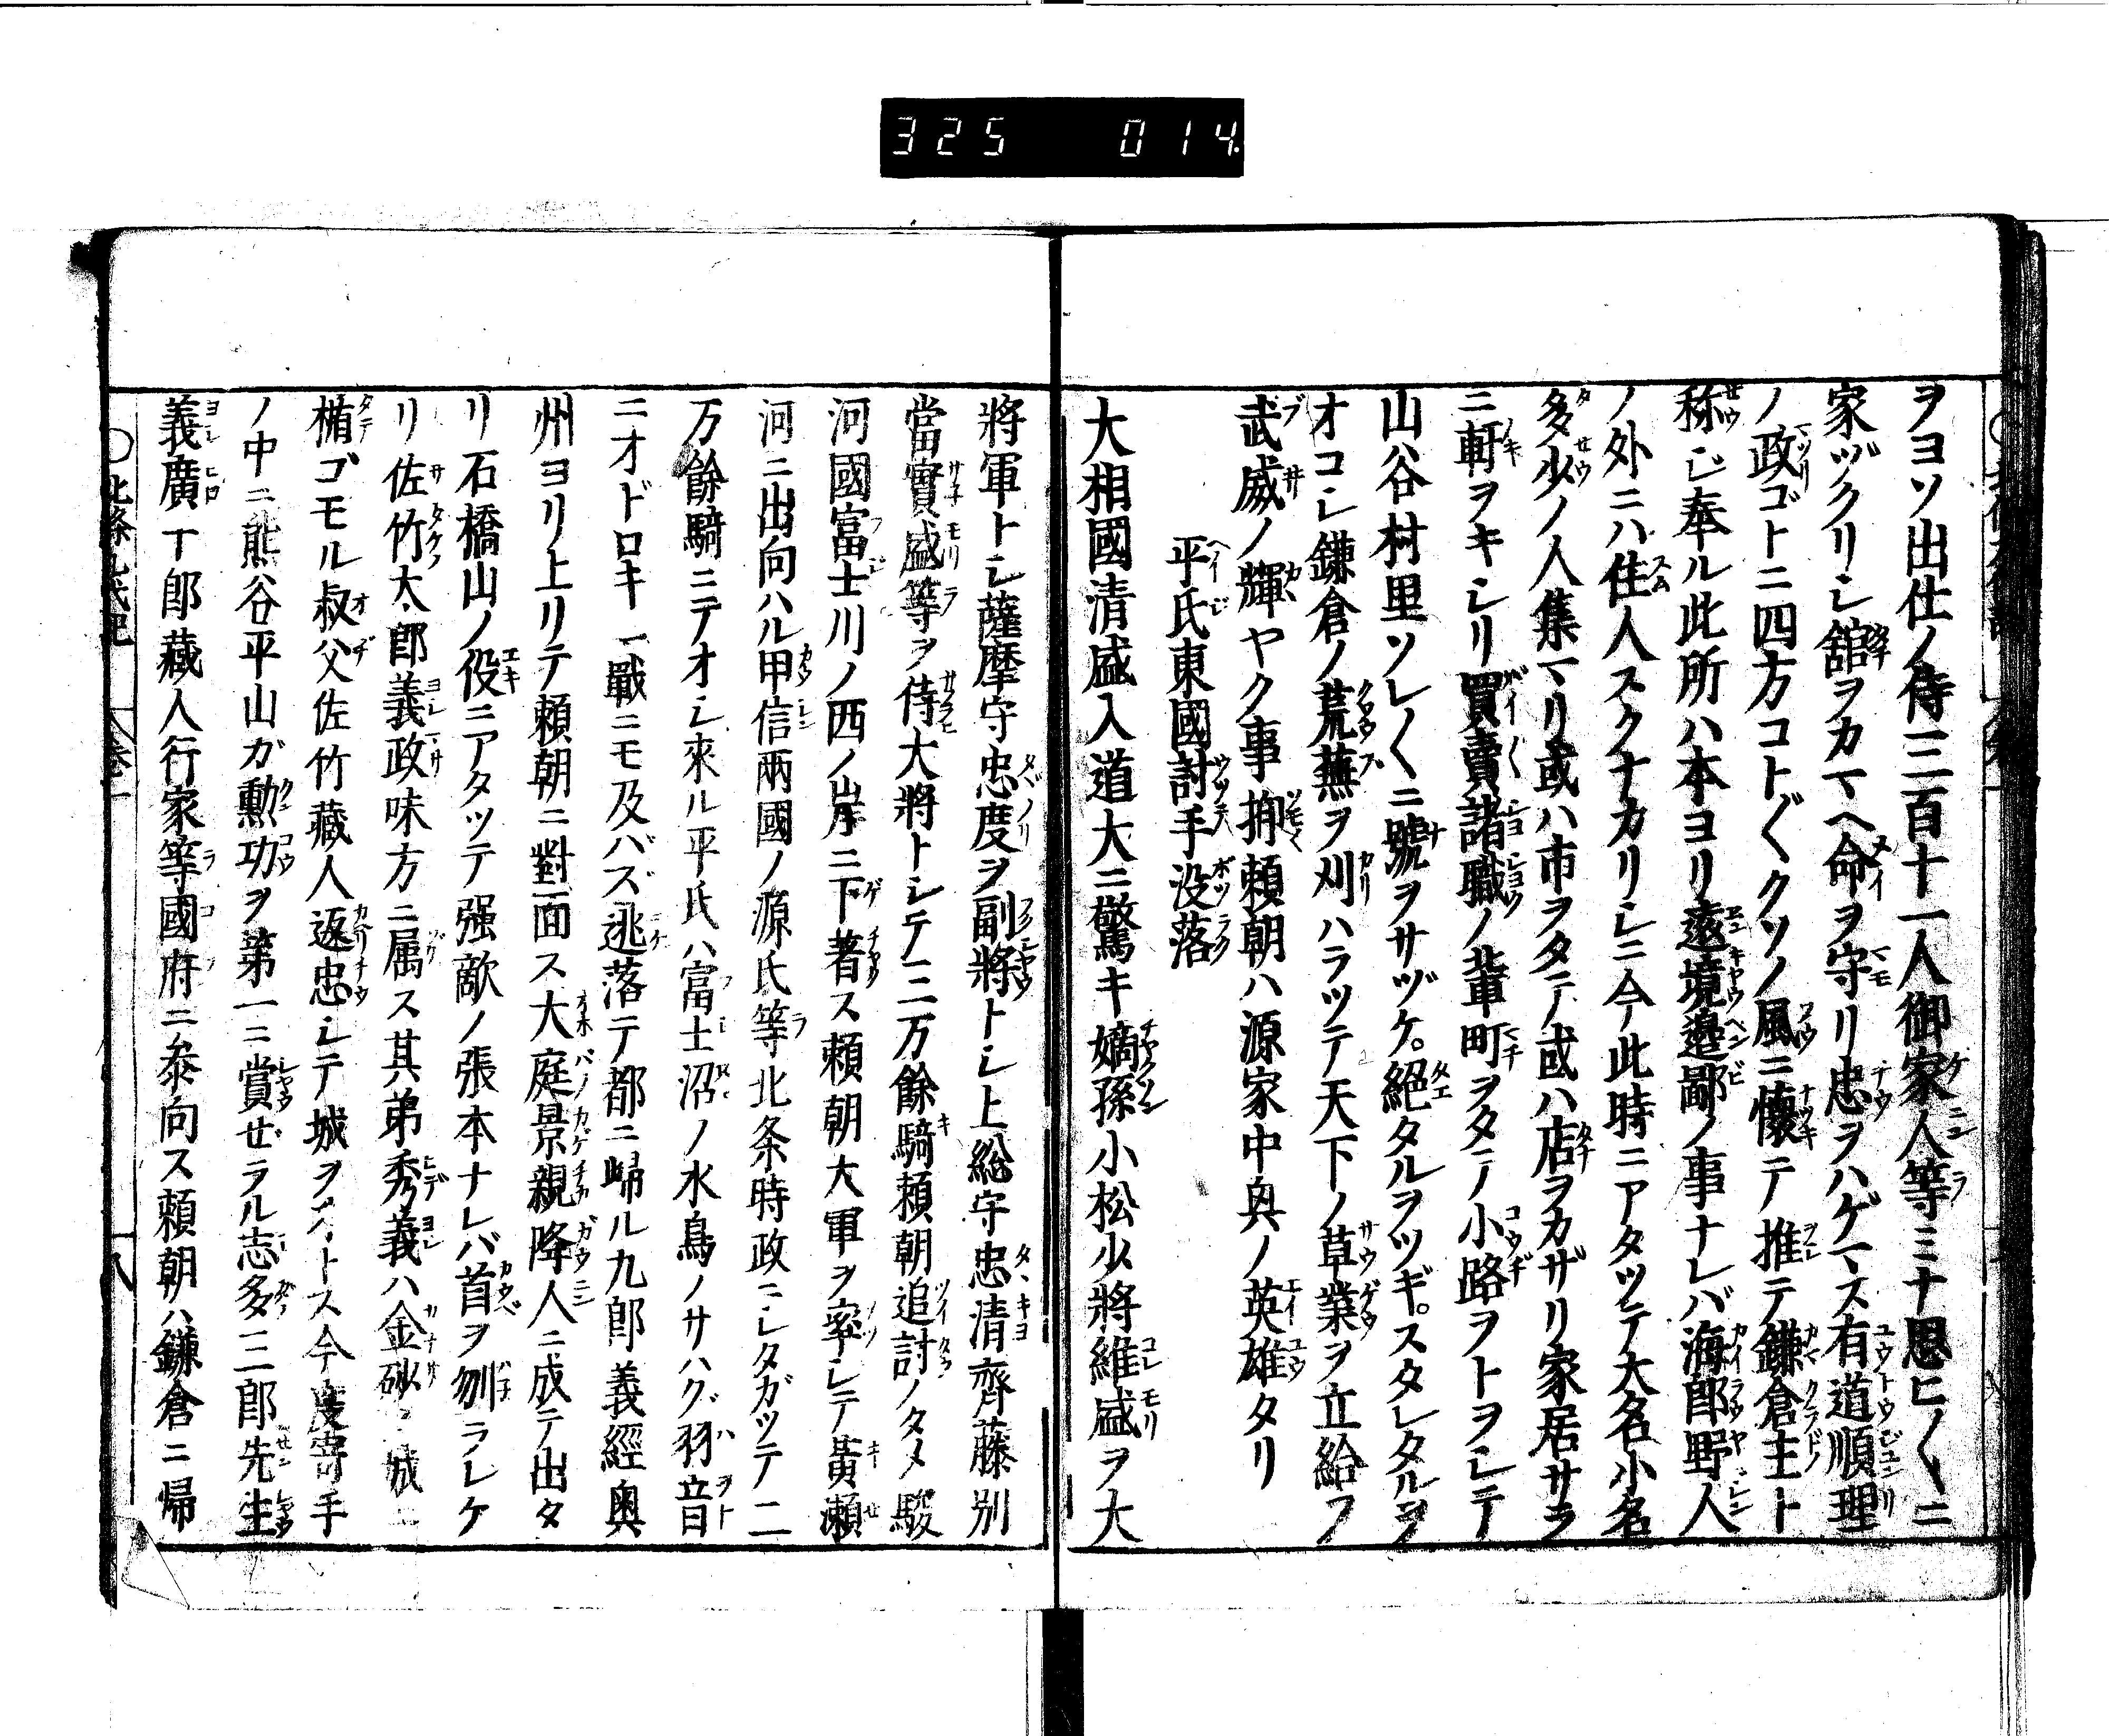 325 014.
ヲヨソ出仕ノ侍三百十一人御家人等ミナ思ヒ〱ニ
家ヅクリシ舘ヲカマヘ命ヲ守リ忠ヲハゲマス有道順理
ノ政ゴトニ四方コト〲クソノ風ニ懷テ推テ鎌倉主ト
称ジ奉ル此所ハ本ヨリ遠境邉鄙ノ事ナレバ海郎野人
ノ外ニハ住人スクナカリシニ今此時ニアタツテ大名小名
多少ノ人集マリ或ハ市ヲタテ或ハ店ヲカザリ家居サラ
ニ軒ヲキシリ買賣諸職ノ輩町ヲタテ小路ヲトヲシテ
山谷村里ソレ〱ニ號ヲサヅケ。絕タルヲツギ。スタレタルヲ
オコシ鎌倉ノ荒蕪ヲ刈ハラツテ天下ノ草業ヲ立給フ
武威ノ輝ヤク事掲頼朝ハ源家中興ノ英雄タリ
平氏東國討手没落
大相國清盛入道大ニ驚キ嫡孫小松少將維盛ヲ大
將軍トシ薩摩守忠度ヲ副將トシ上総守忠清齊藤別
當實盛等ヲ侍大將トシテ三万餘騎頼朝追討ノタメ駿
河國富士川ノ西ノ岸ニ下著ス頼朝大軍ヲ率シテ黃瀬
河ニ出向ハル甲信兩國ノ源氏等北条時政ニシタガツテ二
万餘騎ニテオシ來ル平氏ハ富士沼ノ水鳥ノサハグ羽音
ニオドロキ一戰ニモ及バズ逃落テ都ニ歸ル九郎義經奥
州ヨリ上リテ頼朝ニ對面ス大庭景親降人ニ成テ出タ
リ石橋山ノ役ニアタツテ强敵ノ張本ナレバ首ヲ刎ラレケ
リ佐竹大郎義政味方ニ属ス其弟秀義ハ金砂ノ城ニ
楯ゴモル叔父佐竹藏人返忠シテ城ヲオトス今度寄手
ノ中ニ熊谷平山ガ勳功ヲ第一ニ賞セラル志多三郎先生
義廣十郎藏人行家等國府ニ叅向ス頼朝ハ鎌倉ニ帰
〇北條九代記 卷一 八